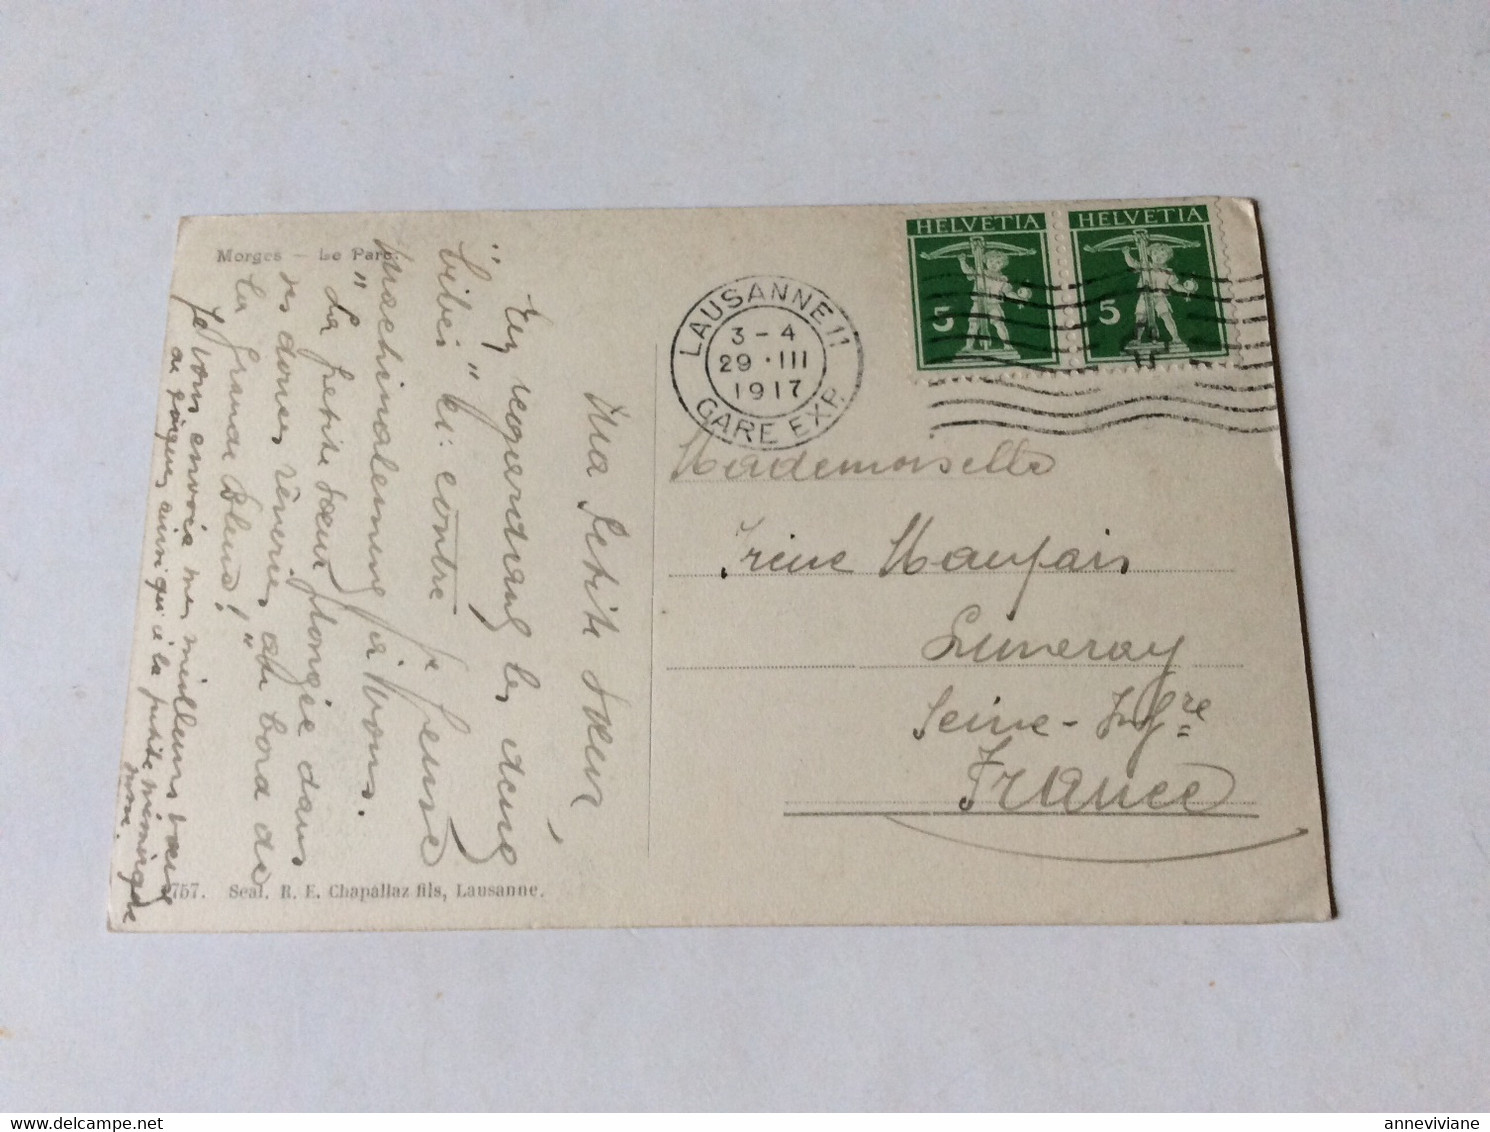 Morges — Le Parc.
Ma Petite Sœur,
En regardant les deux
"bibis" ci-contre je pense
machinalement à vous.
"La petite sœur plongée dans
ses douces rêveries, au bord de
la Grande Bleue!"
Je vous envoie mes meilleurs baisers
ainsi qu'à la petite
757. Seal. R. E. Chapallaz fils, Lausanne.
HELVETIA 5
HELVETIA 5
LAUSANNE 11
3-4
29·III
1917
GARE EXP.
Mademoiselle
Irène
Luneray
Seine-Infre
France
www.delcampe.net
anneviviane